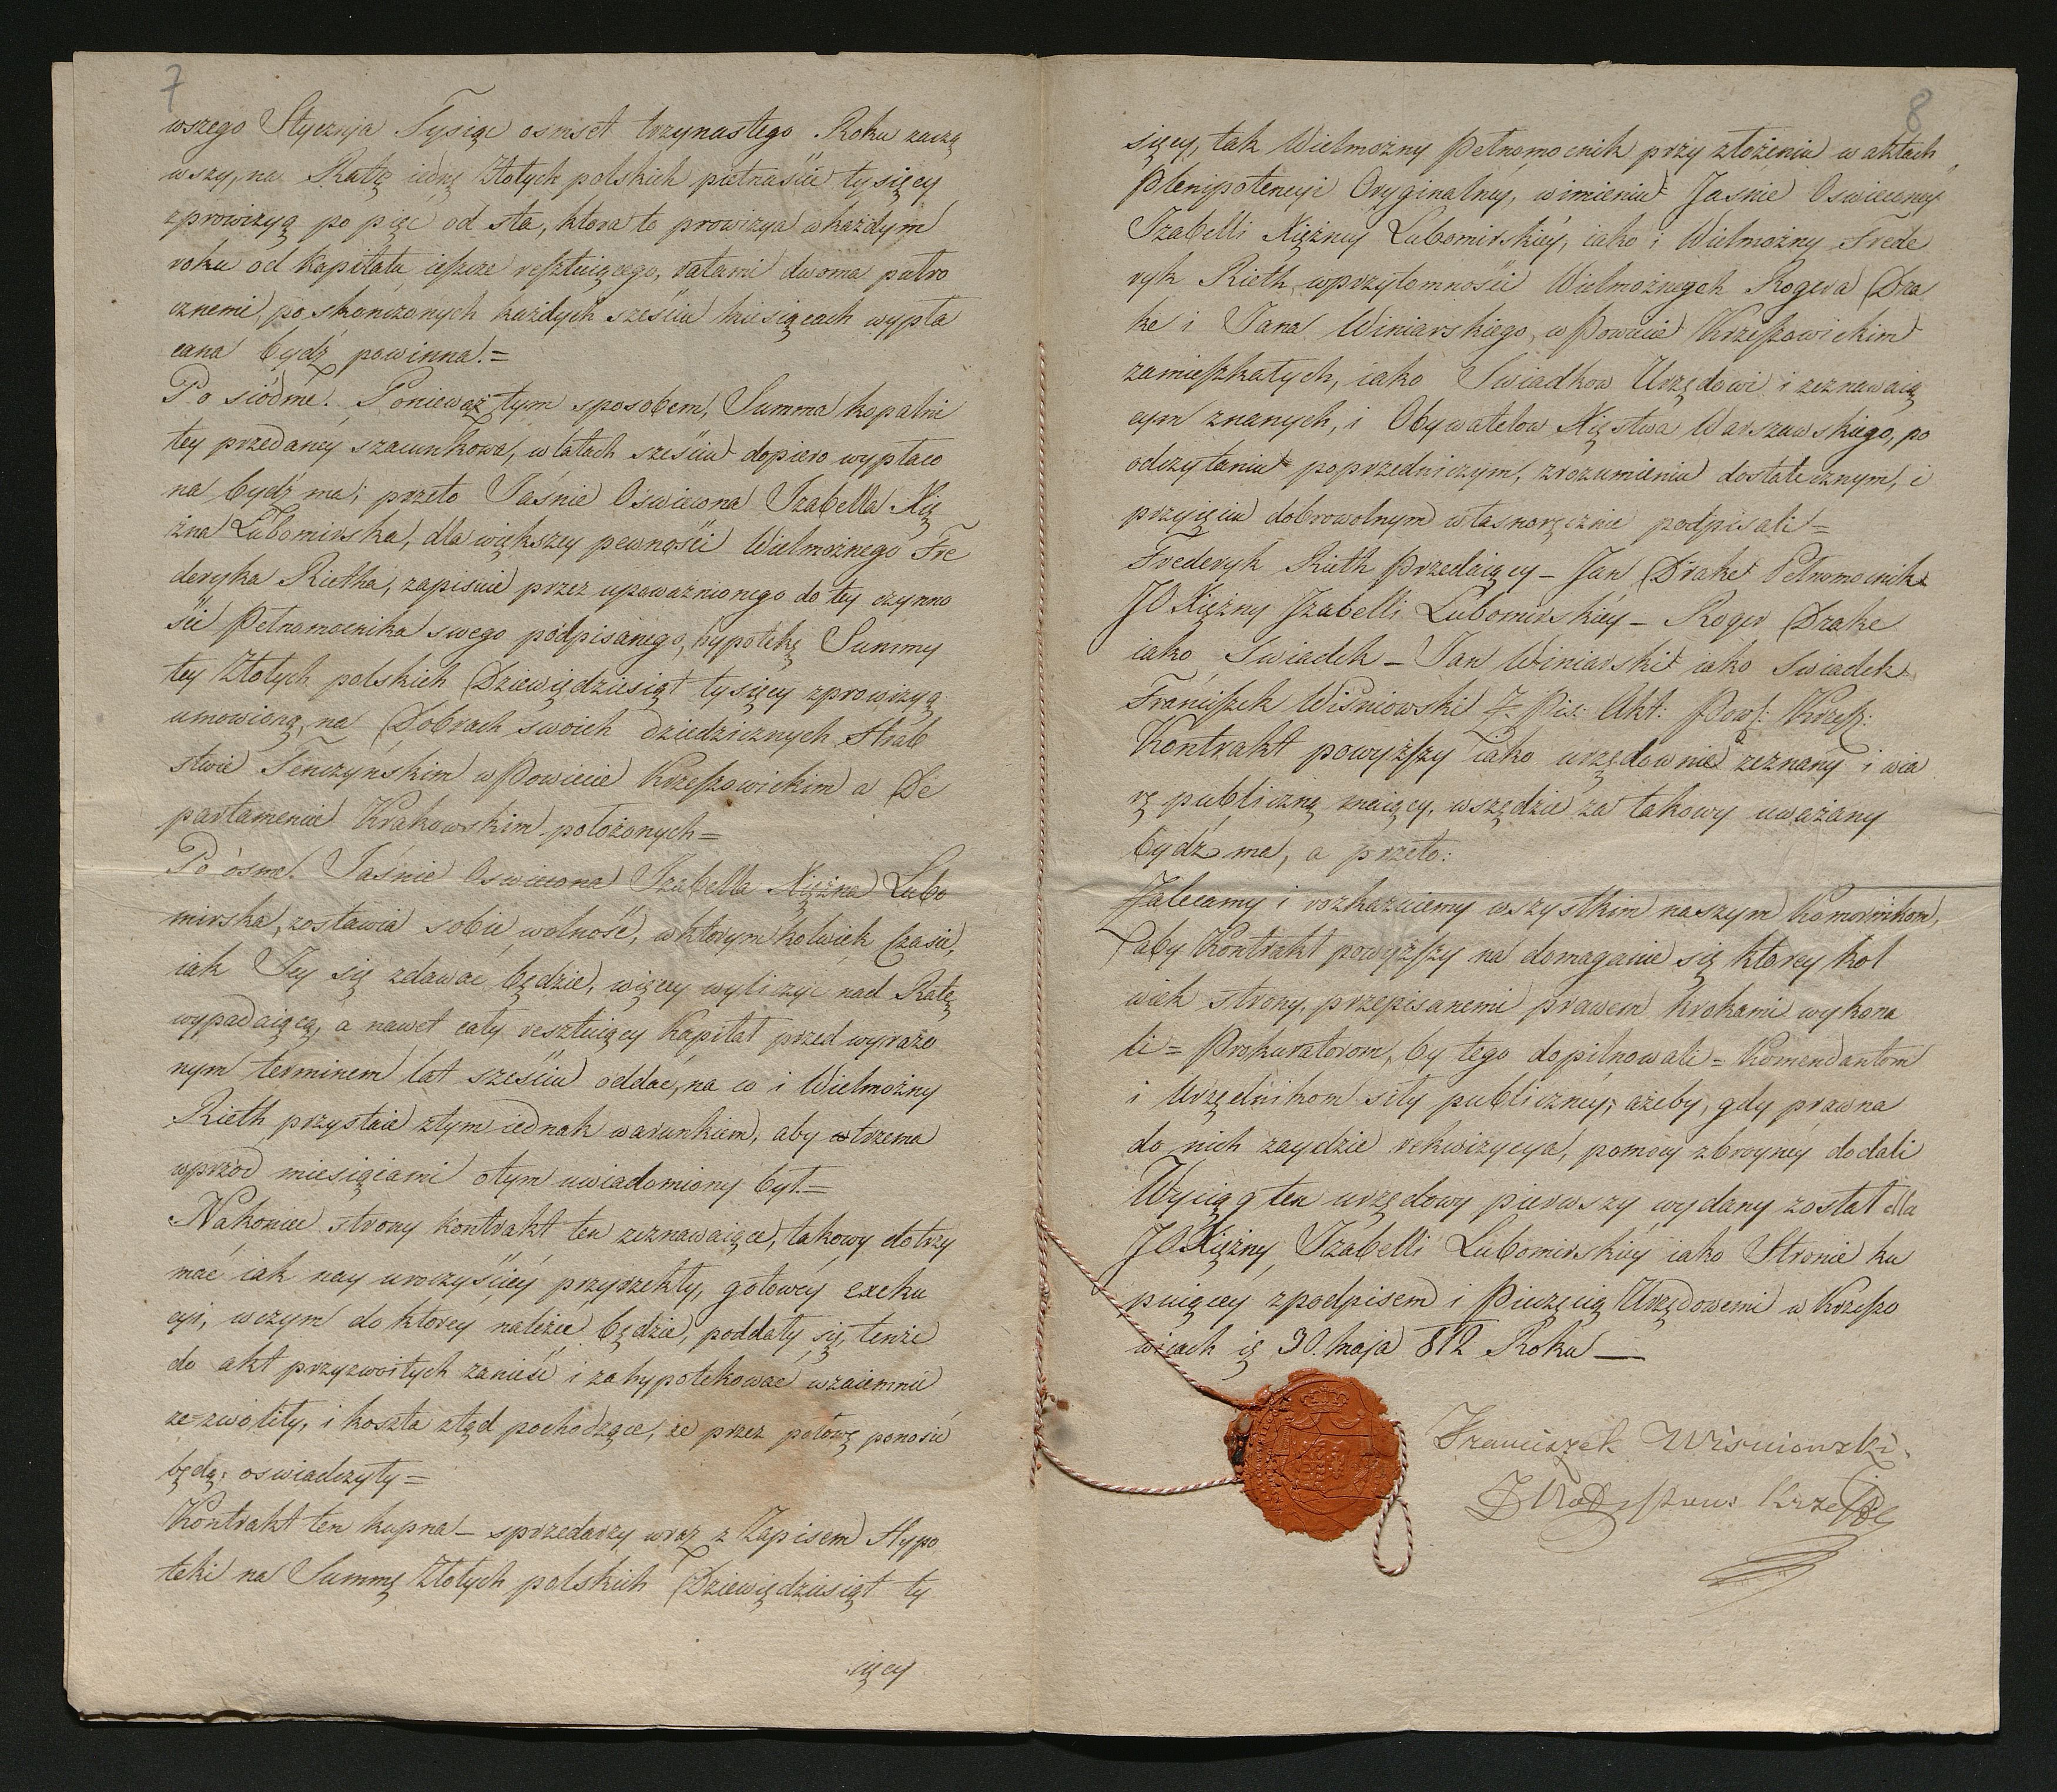 7
wszego Stycznia Tysiąc osmset trzynastego Roku zaczą
wszy, na Ratę iedną Złotych polskich pietnaście tysięcy
zprowizyą po pięć od sta, ktora to prowizya wkażdym
roku od Kapitału ieszcze resztuiącego, ratami dwoma pułro
cznemi, po skończonych każdych sześciu miesiącach wypła
cana bydź powinna.=
Po siódme. Ponieważ tym sposobem, Summa kopalni
tey przedaney szacunkowa, w latach sześciu dopiero wypłaco
na bydź ma; przeto Jaśnie Oświecona Izabella Xię
żna Lubomirska, dla większey pewności Wielmożnego Fre
deryka Rietha, zapisuie przez upoważnionego do tey czynno
ści Pełnomocnika swego podpisanego, hypotekę Summy
tey Złotych polskich Dziewięćdziesiąt tysięcy zprowizyą
umowioną, na Dobrach swoich dziedzicznych Hrab
stwie Tenczyńskim w Powiecie Krzeszowickim a De
partamencie Krakowskim położonych=
Po ósme. Jaśnie Oswiecona Izabella Xiężna Lubo
mirska, zostawia sobie wolność, wktorymkolwiek Czasie,
iak Jey się zdawać będzie, więcey wyliczyć nad Ratę
wypadaiącą, a nawet cały resztuiący Kapitał przed wyrażo
nym terminem lat sześciu oddać, na co i Wielmożny
Rieth przystaie ztym iednak warunkiem, aby otrzema
wprzod miesiącami otym uwiadomiony był.=
Nakoniec strony kontrakt ten zeznawaiące, takowy dotrzy
mać iak nay uroczyściey przyrzekły, gotowey exeku
cyi, wczym do ktorey należeć będzie, poddały się, tenże
do akt przyzwoitych zanieść i zahypotekować wzaiemnie
ze=zwoliły, i koszta ztąd pochodzące, że przez połowę ponosić
będą; oswiadczyły=
Kontrakt ten kupna – sprzedarzy wraz z Zapisem Hypo
teki na Summę Złotych polskich Dziewięćdziesiąt ty
sięcy
8
sięcy, tak Wielmożny Pełnomocnik przy złożeniu w aktach
Plenipotencyi Oryginalney, wimieniu Jaśnie Oswieconey
Izabelli Xiężney Lubomirskiey, iako i Wielmożny Frede
ryk Rieth, wprzytomności Wielmożnych Rogera Dra
ke i Jana Winiarskiego, w Powiecie Krzeszowickim
zamieszkałych, iako Swiadkow Urzędowi i zeznawaią
cym znanych, i Obywatelow Xięstwa Warszawskiego, po
odczytaniu poprzedniczym, zrozumieniu dostatecznym, i
przyięciu dobrowolnym własnoręcznie podpisali=
Frederyk Rieth Przedaiący – Jan Drake Pełnomocnik
JO Xiężny Izabelli Lubomirskiey – Roger Drake
iako Swiadek – Jan Winiarski iako Swiadek
Franciszek Wiśniowski Z. Pis: Akt: Pow: Krzesz:
Kontrakt powyższy iako urzędownie zeznany i wia
rę publiczną maiący, wszędzie za takowy uważany
bydź ma, a przeto:
Zalecamy i rozkazuiemy wszystkim naszym Komornikom,
aby Kontrakt powyższy na domaganie się ktorey kol
wiek strony, przepisanemi prawem krokami wykona
li = Prokuratorom, by tego dopilnowali = Komendantom
i Urzędnikom siły publiczney, ażeby, gdy prawna
do nich zaydzie rekwizycya, pomocy zbroyney dodali
Wyciąg ten urzędowy pierwszy wydany został dla
JO Xiężny Izabelli Lubomirskiey iako Stronie ku
puiącey zpodpisem i Pieczęcią Urzędowemi w Krzeszo
wicach ię 30 maja 812 Roku —
Franciszek Wisniowski